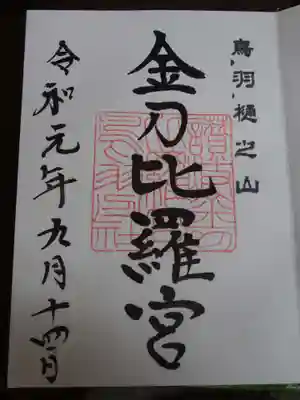 鳥羽樋之山
金刀比羅宮
令和元年九月十四日